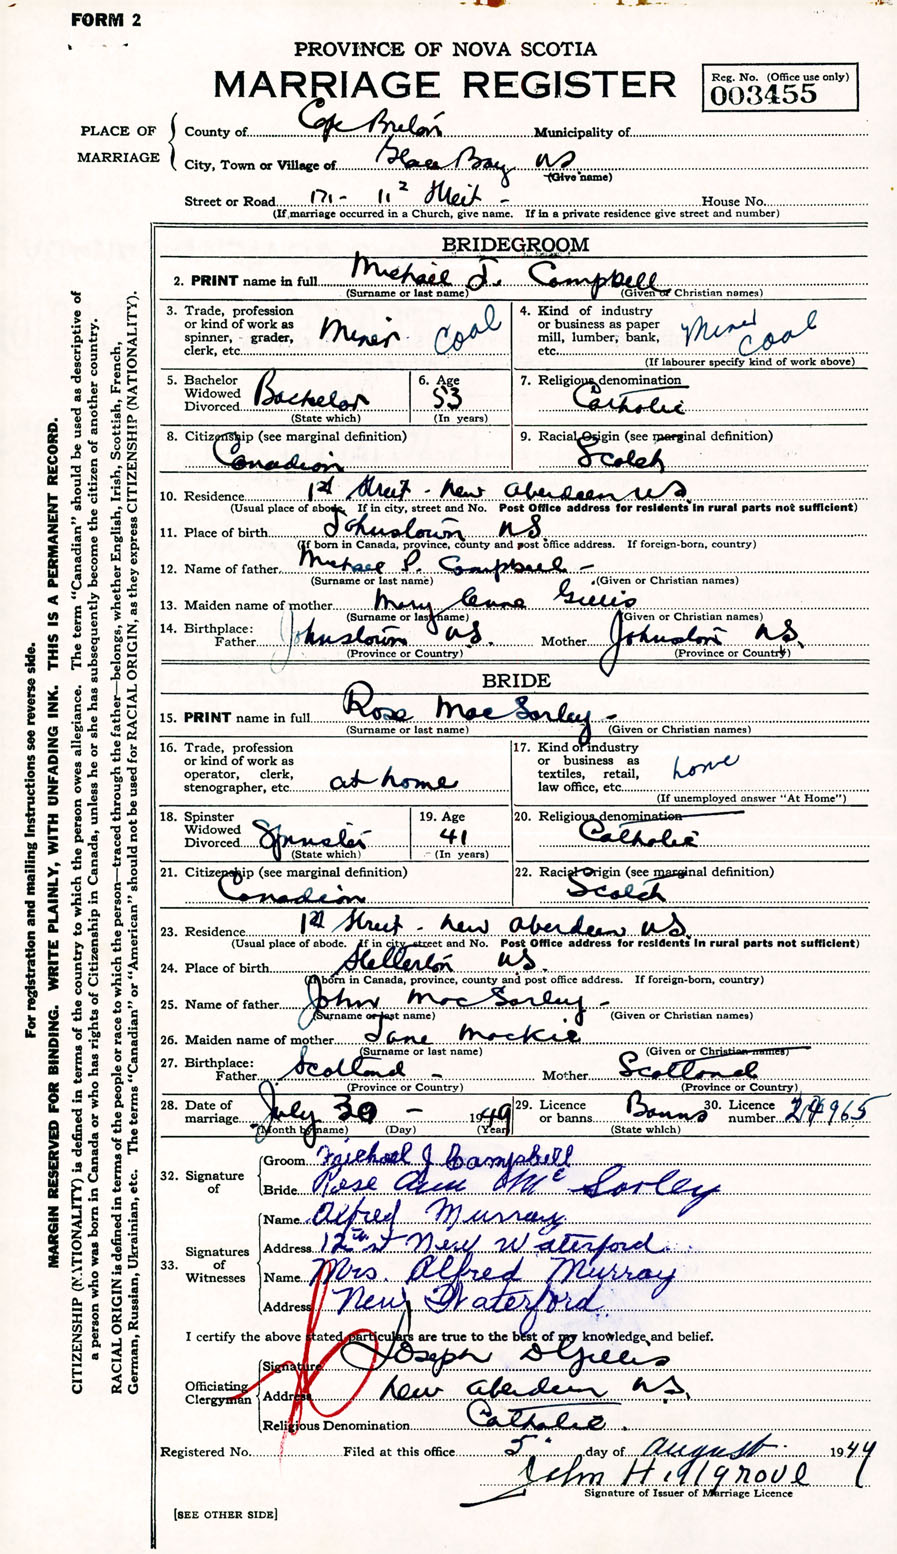 FORM 2
PROVINCE OF NOVA SCOTIA
MARRIAGE REGISTER
Reg. No. (Office use only)
003455
PLACE OF MARRIAGE
County of Cape Breton Municipality of
City, Town or Village of Glace Bay NS
(Give name)
Street or Road 171 - 11 Street - House No.
(If marriage occurred in a Church, give name. If in a private residence give street and number)
BRIDEGROOM
2. PRINT name in full Michael J. Campbell
(Surname or last name) (Given or Christian names)
3. Trade, profession or kind of work as spinner, grader, clerk, etc. Miner Coal
4. Kind of industry or business as paper mill, lumber, bank, etc. Mines Coal
(If labourer specify kind of work above)
5. Bachelor Widowed Divorced Bachelor
(State which)
6. Age 53
(In years)
7. Religious denomination Catholic
8. Citizenship (see marginal definition)
Canadian
9. Racial Origin (see marginal definition)
Scotch
10. Residence 1st Street - New Aberdeen NS
(Usual place of abode. If in city, street and No. Post Office address for residents in rural parts not sufficient)
11. Place of birth Johnstown NS.
(If born in Canada, province, county and post office address. If foreign-born, country)
12. Name of father Michael P. Campbell -
(Surname or last name) (Given or Christian names)
13. Maiden name of mother Mary Anne Gillis
(Surname or last name) (Given or Christian names)
14. Birthplace: Father Johnstown NS. Mother Johnston NS.
(Province or Country) (Province or Country)
BRIDE
15. PRINT name in full Rose MacSorley -
(Surname or last name) (Given or Christian names)
16. Trade, profession or kind of work as operator, clerk, stenographer, etc. at home
17. Kind of industry or business as textiles, retail, law office, etc. home
(If unemployed answer "At Home")
18. Spinster Widowed Divorced Spinster
(State which)
19. Age 41
(In years)
20. Religious denomination Catholic
21. Citizenship (see marginal definition)
Canadian
22. Racial Origin (see marginal definition)
Scotch
23. Residence 1st Street - New Aberdeen NS.
(Usual place of abode. If in city, street and No. Post Office address for residents in rural parts not sufficient)
24. Place of birth Stellerton NS.
(If born in Canada, province, county and post office address. If foreign-born, country)
25. Name of father John MacSorley -
(Surname or last name) (Given or Christian names)
26. Maiden name of mother Jane Mackie
(Surname or last name) (Given or Christian names)
27. Birthplace: Father Scotland - Mother Scotland
(Province or Country) (Province or Country)
28. Date of marriage July 30 - 1949
(Month by name) (Day) (Year)
29. Licence or banns Banns
(State which)
30. Licence number 24965
32. Signature of
Groom Michael J Campbell
Bride Rose Ann Mc Sorley
33. Signatures of Witnesses
Name Alfred Murray
Address 12th st New Waterford
Name Mrs. Alfred Murray
Address New Waterford
I certify the above stated particulars are true to the best of my knowledge and belief.
Officiating Clergyman
Signature Joseph D Gillis
Address New Aberdeen NS.
Religious Denomination Catholic.
Registered No. Filed at this office 5 day of August 1944
John Hillgrove
Signature of Issuer of Marriage Licence
[SEE OTHER SIDE]
For registration and mailing instructions see reverse side.
MARGIN RESERVED FOR BINDING. WRITE PLAINLY, WITH UNFADING INK. THIS IS A PERMANENT RECORD.
CITIZENSHIP (NATIONALITY) is defined in terms of the country to which the person owes allegiance. The term "Canadian" should be used as descriptive of
a person who was born in Canada or who has rights of Citizenship in Canada, unless he or she has subsequently become the citizen of another country.
RACIAL ORIGIN is defined in terms of the people or race to which the person—traced through the father—belongs, whether English, Irish, Scottish, French,
German, Russian, Ukrainian, etc. The terms "Canadian" or "American" should not be used for RACIAL ORIGIN, as they express CITIZENSHIP (NATIONALITY).